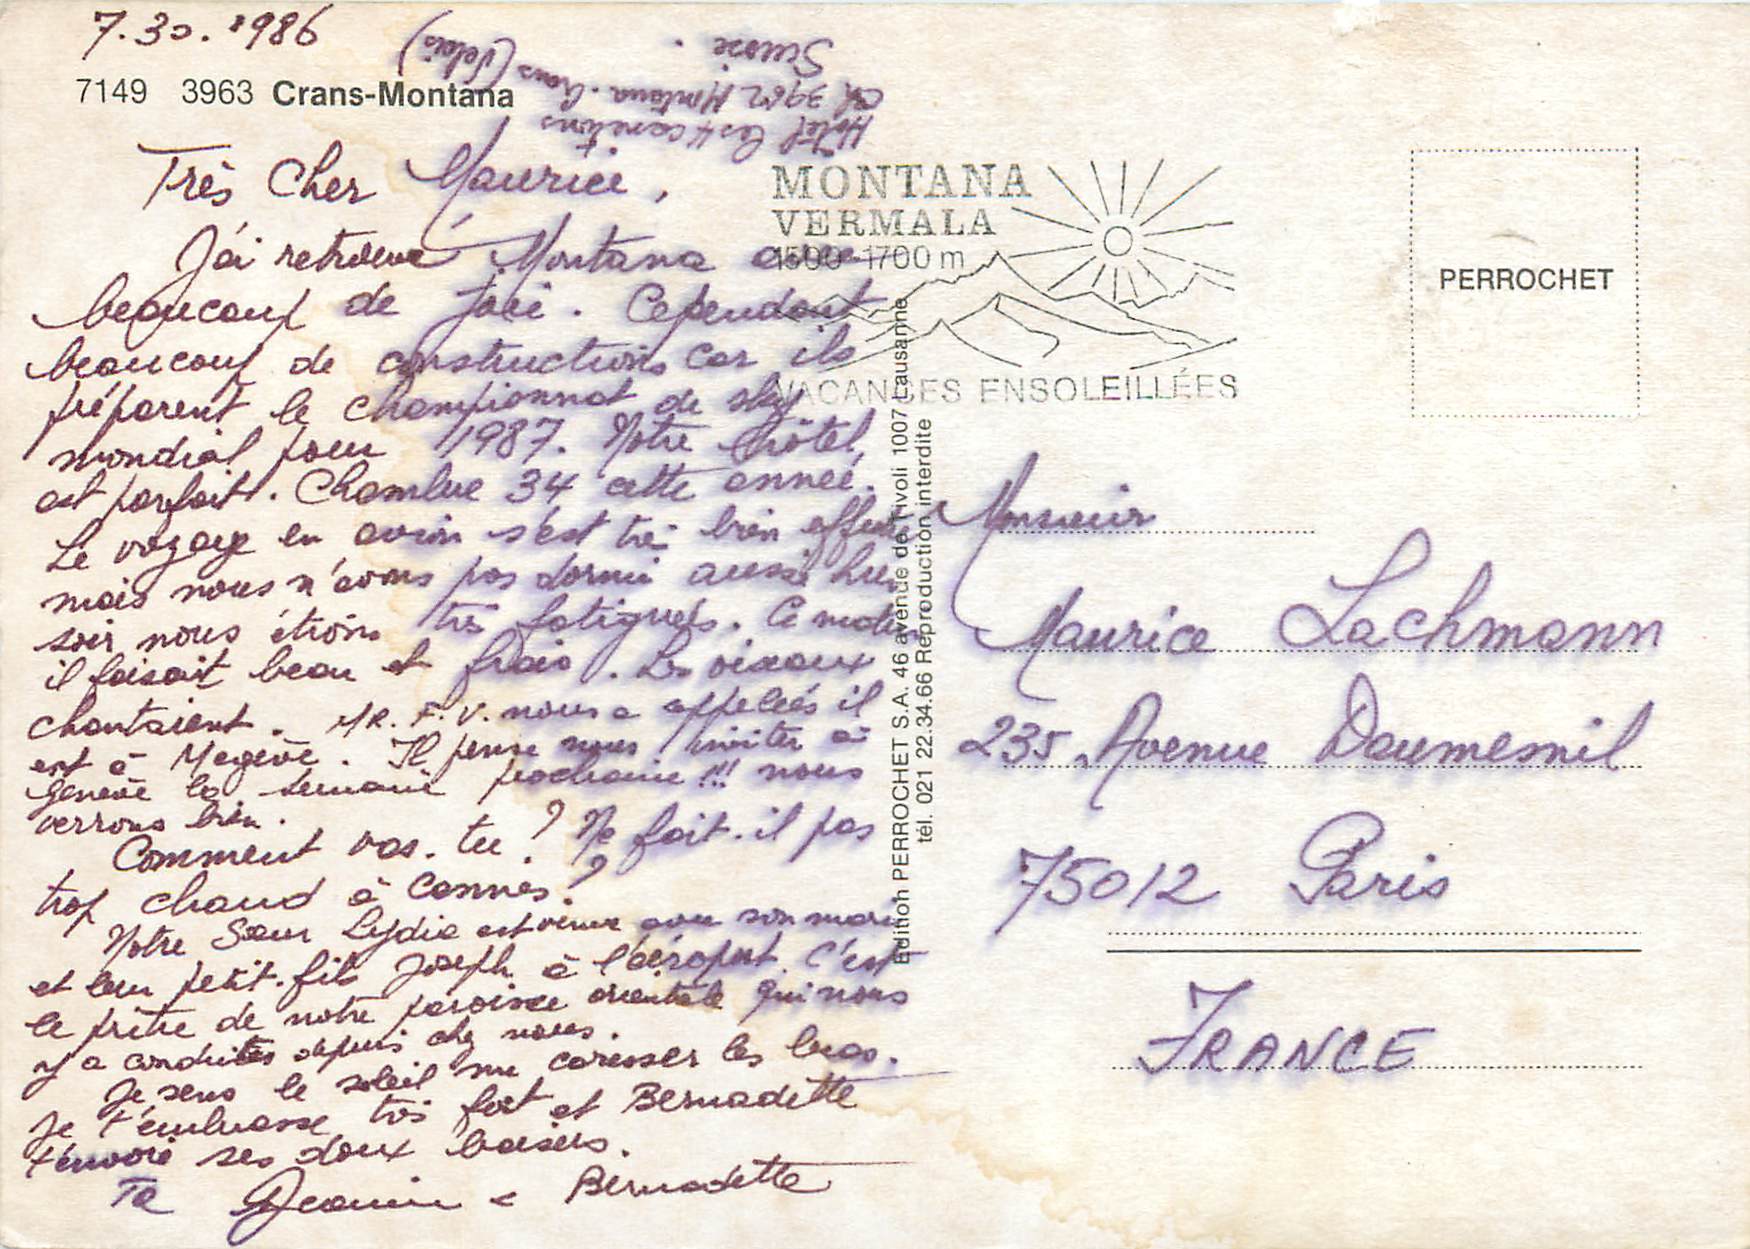 7.30. 1986
7149 3963 Crans-Montana
Hôtel les 4 canetons
CH 3962 Montana-Crans (Valais)
Suisse.
Très Cher Maurice,
J'ai retrouvé Montana avec
beaucoup de joie. Cependant
beaucoup de constructions car ils
préparent le championnat de sky
mondial pour 1987. Notre hôtel
est parfait. Chambre 34 cette année.
Le voyage en avion s'est très bien
mais nous n'avons pas dormi aussi hier
soir nous étions très fatiguées. Ce matin
il faisait beau et frais. Les oiseaux
chantaient. MR. F. V. nous a appelées il
est à Megève. Il pense nous inviter à
Genève la semaine prochaine !!! nous
verrons bien.
Comment vas-tu ? Ne fait-il pas
trop chaud à Cannes ?
Notre Sœur Lydia est venue avec son mari
et leur petit-fils Joseph à l'aéroport. C'est
le prêtre de notre paroisse orientale qui nous
y a conduites depuis chez nous.
Je sens le soleil me caresser les bras.
Je t'embrasse très fort et Bernadette
t'envoie ses doux baisers.
Ta Jeannine Bernadette
MONTANA
VERMALA
1500-1700 m
VACANCES ENSOLEILLÉES
PERROCHET
Edition PERROCHET S.A. 46 avenue de Tivoli 1007 Lausanne
tél. 021 22.34.66 Reproduction interdite
Monsieur
Maurice Lachmann
235, Avenue Daumesnil
75012 Paris
FRANCE